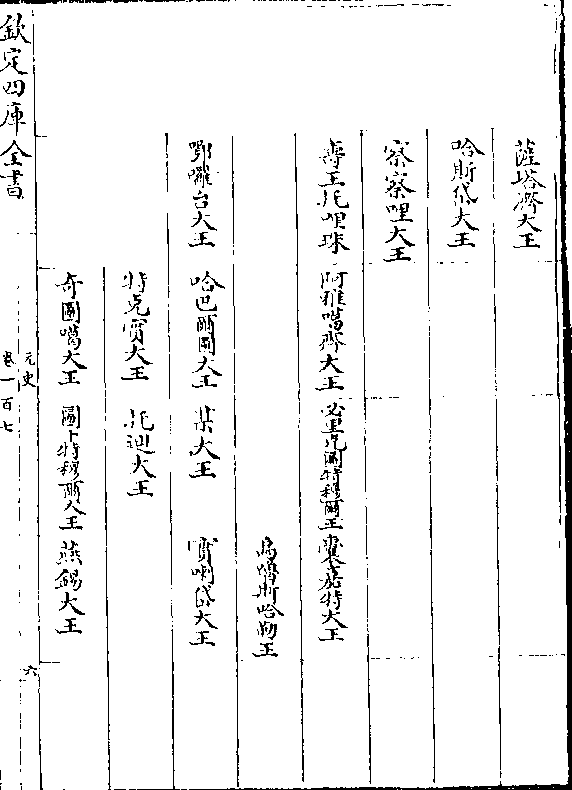 薩塔濟大王
哈斯岱大王
察察哩大王
壽王托哩珠 阿雅噶齊大王 必里克圖特穆爾王 囊嘉特大王
烏嚕斯哈勒王
鄂囉台大王 哈巴爾圖大王 某大王 實喇岱大王
特克實大王 托迪大王
奇圖噶大王 圖卜特穆爾大王 燕錫大王
欽定四庫全書
元史
卷一百七
六